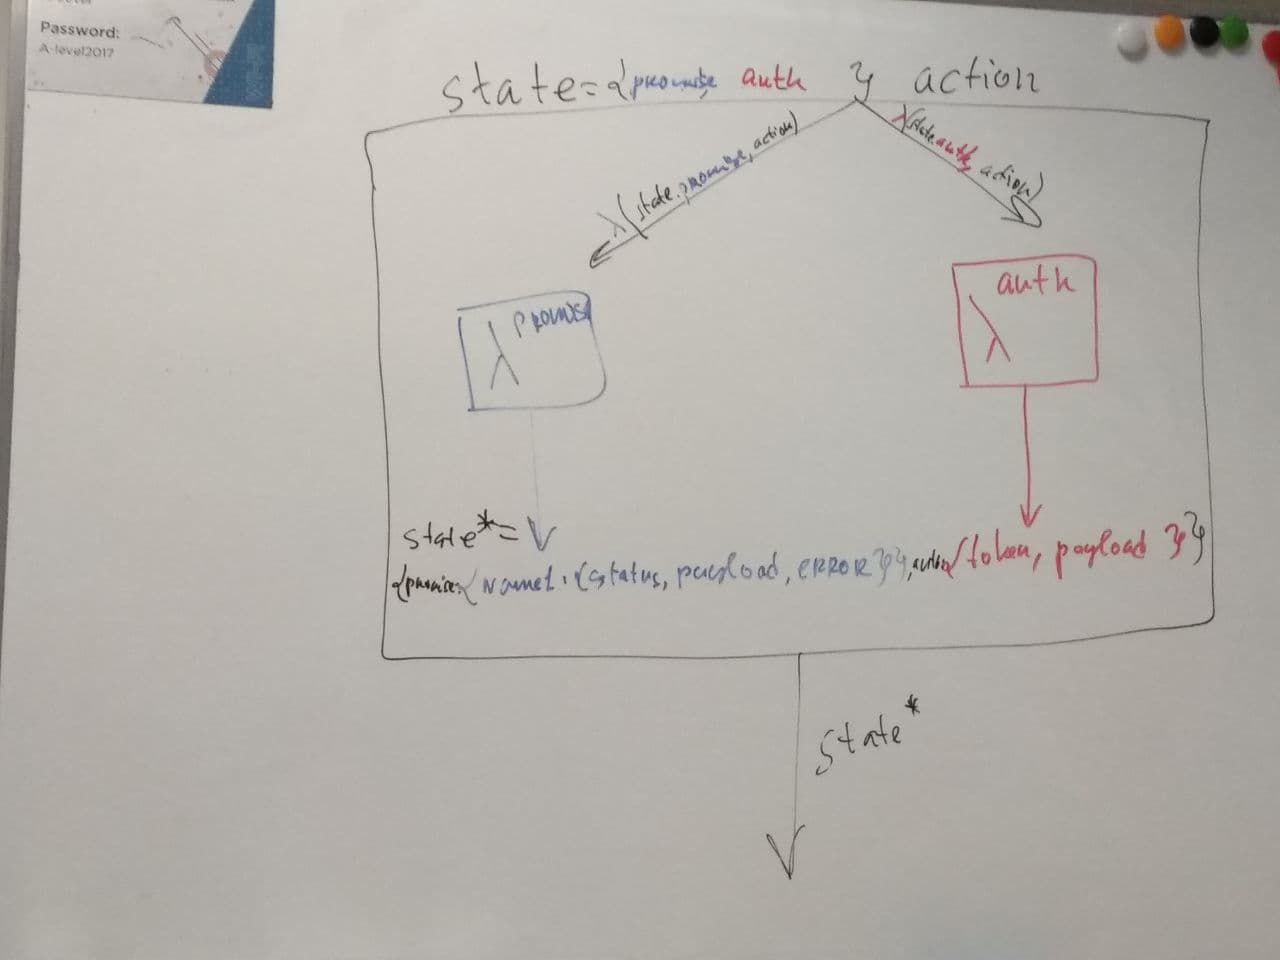 Password:
A-level2017
state={promise auth } action
λ(state.promise, action)
λ(state.auth, action)
λ promise
auth
λ
state*=
{promise:{name1:{status, payload, ERROR}}, auth:{token, payload }}
state*